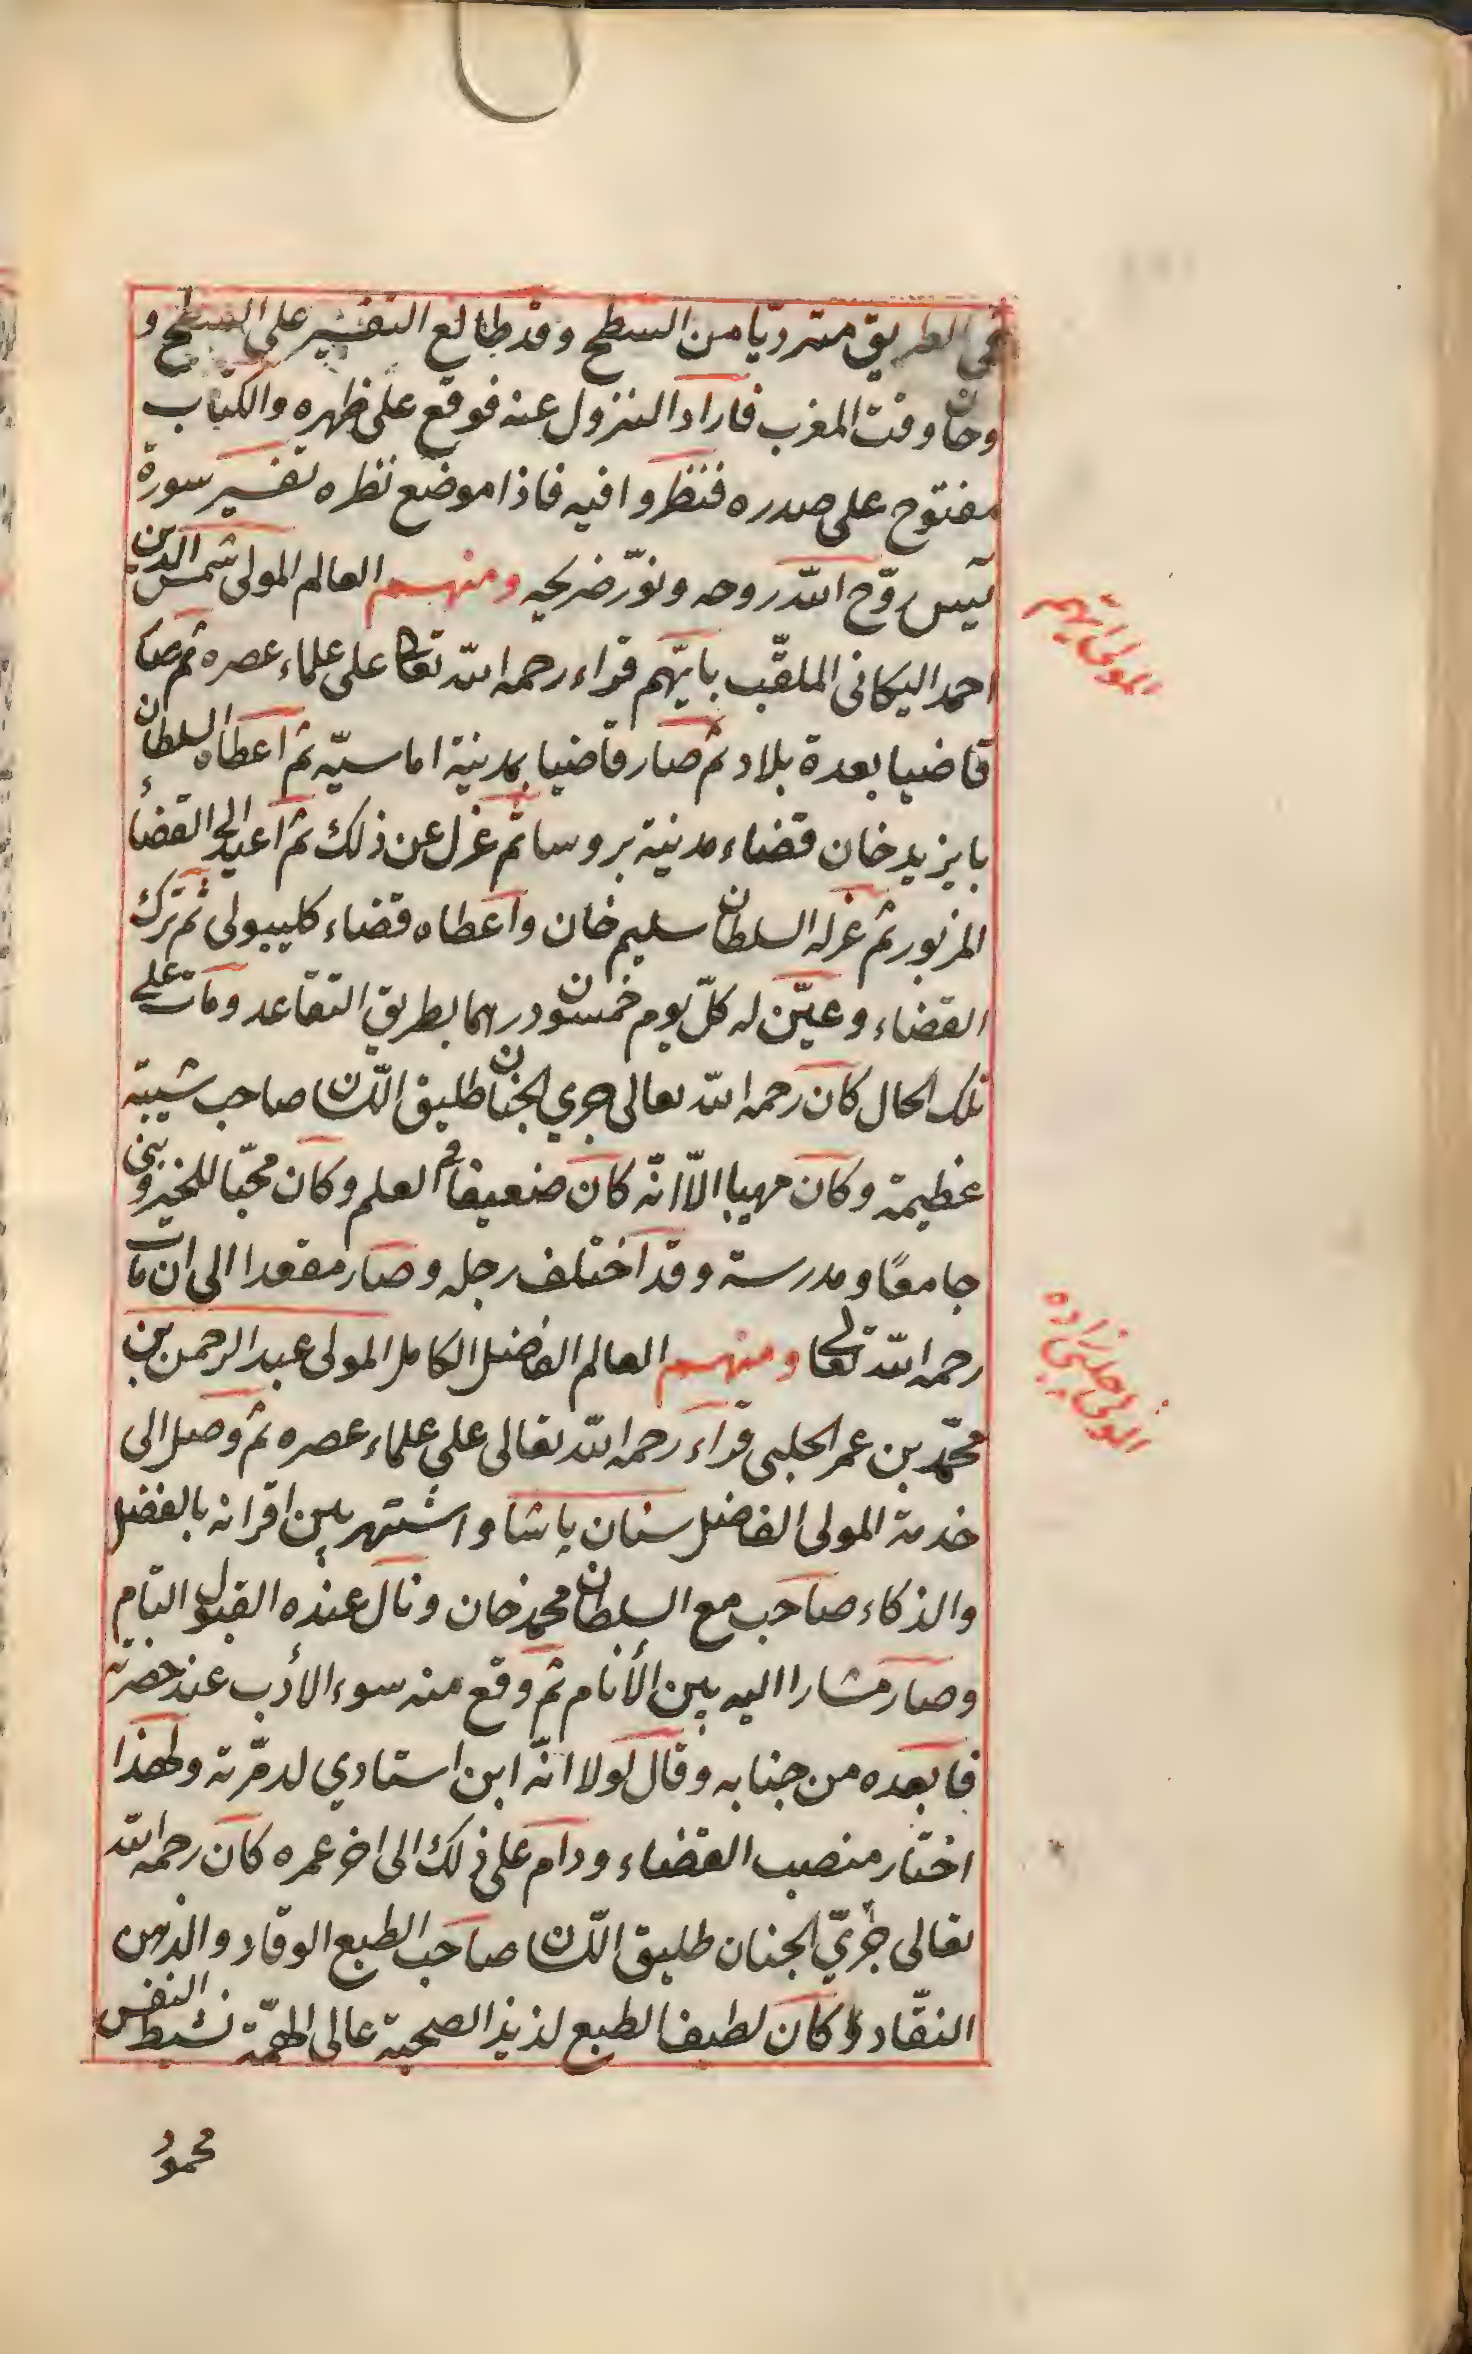 في الطريق متردّيا من السطح وقد طالع التفسير على السطح و
وحان وقت المغرب فاراد النزول عنه فوقع على ظهره والكتاب
مفتوح على صدره فنظروا فيه فاذا موضع نظره تفسير سورة
يٓس روّح الله روحه ونوّر ضريحه ومنهم العالم المولى شمس الدين
احمد اليكانى الملقّب بايهم قراء رحمه الله تعالى على علماء عصره ثم صار
قاضيا بعدة بلاد ثم صار قاضيا بمدينة اماسيّه ثم اعطاه السلطان
بايزيد خان قضاء مدينة بروسا ثم عزل عن ذلك ثم اعيد الى القضاء
المزبور ثم عزله السلطان سليم خان واعطاه قضاء كليبولى ثم ترك
القضاء وعيّن له كلّ يوم خمسون درهما بطريق التقاعد ومات على
تلك الحال كان رحمه الله تعالى جرى الجنان طليق اللسان صاحب شيبة
عظيمة وكان مهيبا الّا انّه كان ضعيفا فى العلم وكان محبّا للخير وبنى
جامعًا ومدرسة وقد اختلف رجله وصار مقعدا الى ان مات
رحمه الله تعالى ومنهم العالم الفاضل الكامل المولى عبد الرحمن بن
محمّد بن عمر الحلبى قراء رحمه الله تعالى على علماء عصره ثم وصل الى
خدمة المولى الفاضل سنان پاشا واشتهر بين اقرانه بالفضل
والذكاء صاحب مع السلطان محمد خان ونال عنده القبول التام
وصار مشارا اليه بين الأنام ثم وقع منه سوء الأدب عند حضرته
فابعده من جنابه وقال لولا انّه ابن استادي لدمّرته ولهذا
اختار منصب القضاء ودام على ذلك الى اخر عمره كان رحمه الله
تعالى جرىّ الجنان طليق اللسان صاحب الطبع الوقاد والذهن
النقّاد وكان لطيف الطبع لذيذ الصحبة عالى الهمّة نشيط النفس
محمود
المولى ايهم
المولى حلبى زاده